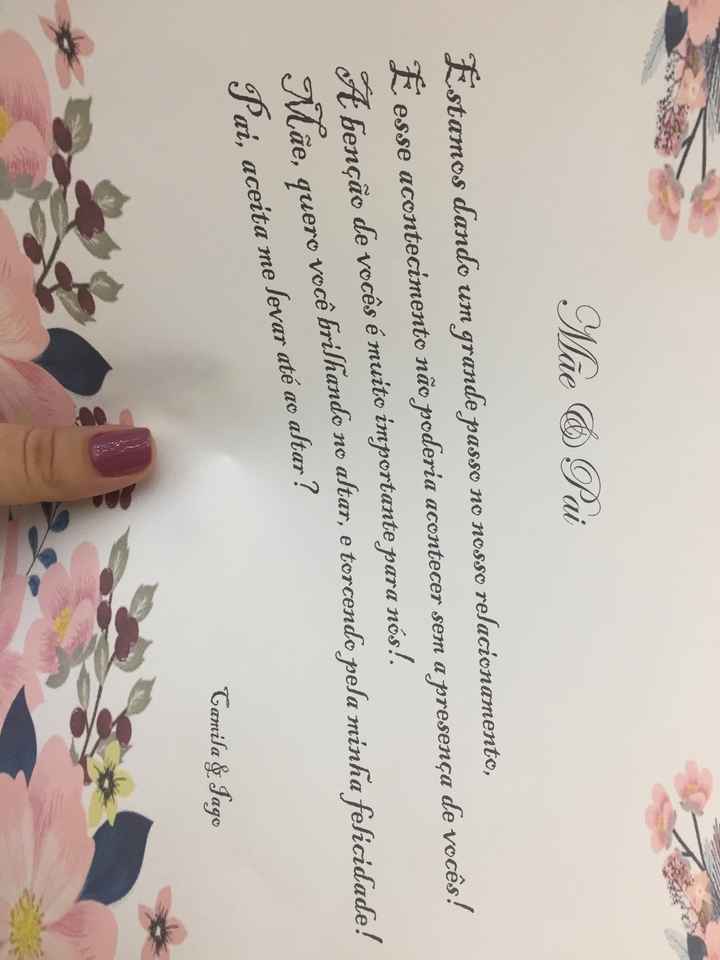 Mãe & Pai
Estamos dando um grande passo no nosso relacionamento,
E esse acontecimento não poderia acontecer sem a presença de vocês!
A benção de vocês é muito importante para nós!.
Mãe, quero você brilhando no altar, e torcendo pela minha felicidade!
Pai, aceita me levar até ao altar?
Camila & Iago